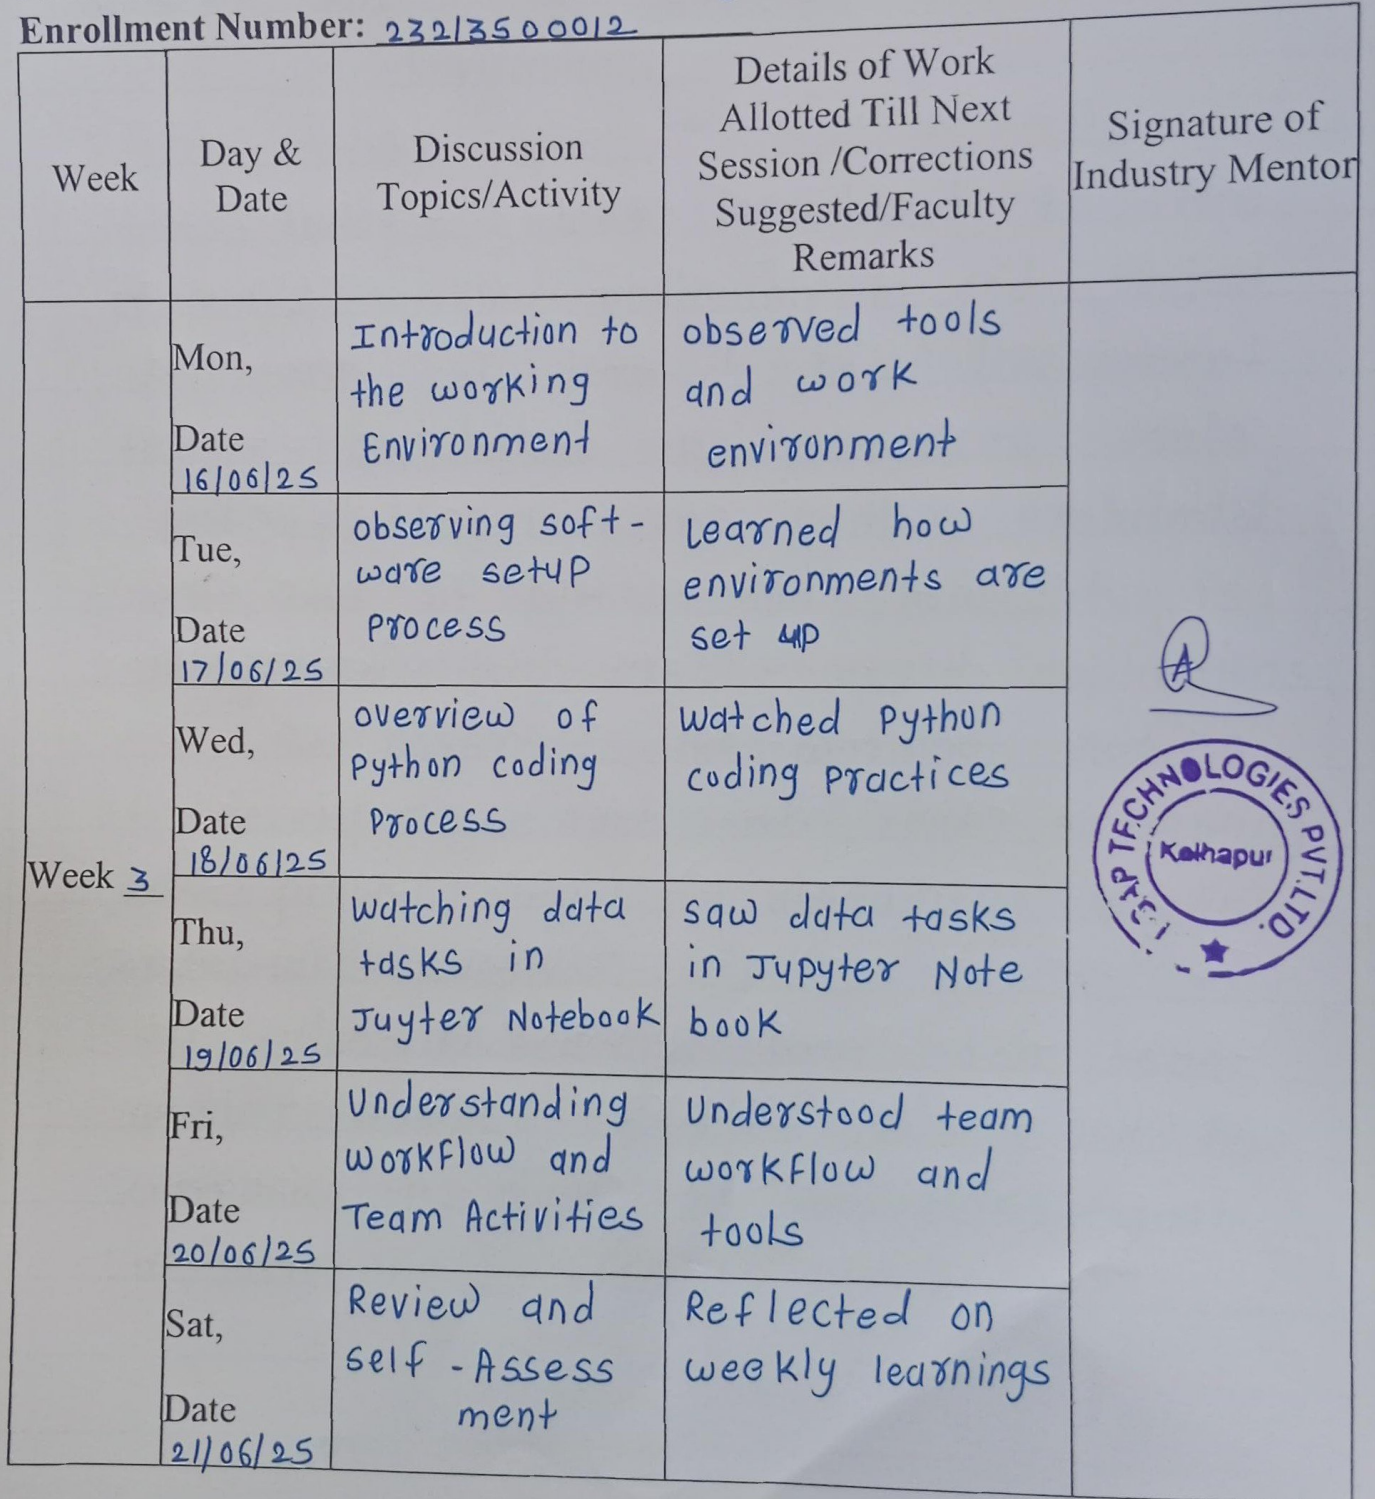 Enrollment Number: 23213500012
Week
Day &
Date
Discussion
Topics/Activity
Details of Work
Allotted Till Next
Session /Corrections
Suggested/Faculty
Remarks
Signature of
Industry Mentor
Week 3
Mon,
Date
16/06/25
Introduction to
the working
Environment
observed tools
and work
environment
Tue,
Date
17/06/25
observing soft-
ware setup
process
Learned how
environments are
set up
Wed,
Date
18/06/25
overview of
Python coding
Process
Watched Python
coding practices
Thu,
Date
19/06/25
watching data
tasks in
Juyter Notebook
saw data tasks
in Jupyter Note
book
Fri,
Date
20/06/25
Understanding
workflow and
Team Activities
Understood team
workflow and
tools
Sat,
Date
21/06/25
Review and
self -Assess
ment
Reflected on
weekly learnings
TECHNOLOGIES PVT.LTD.
Kolhapur